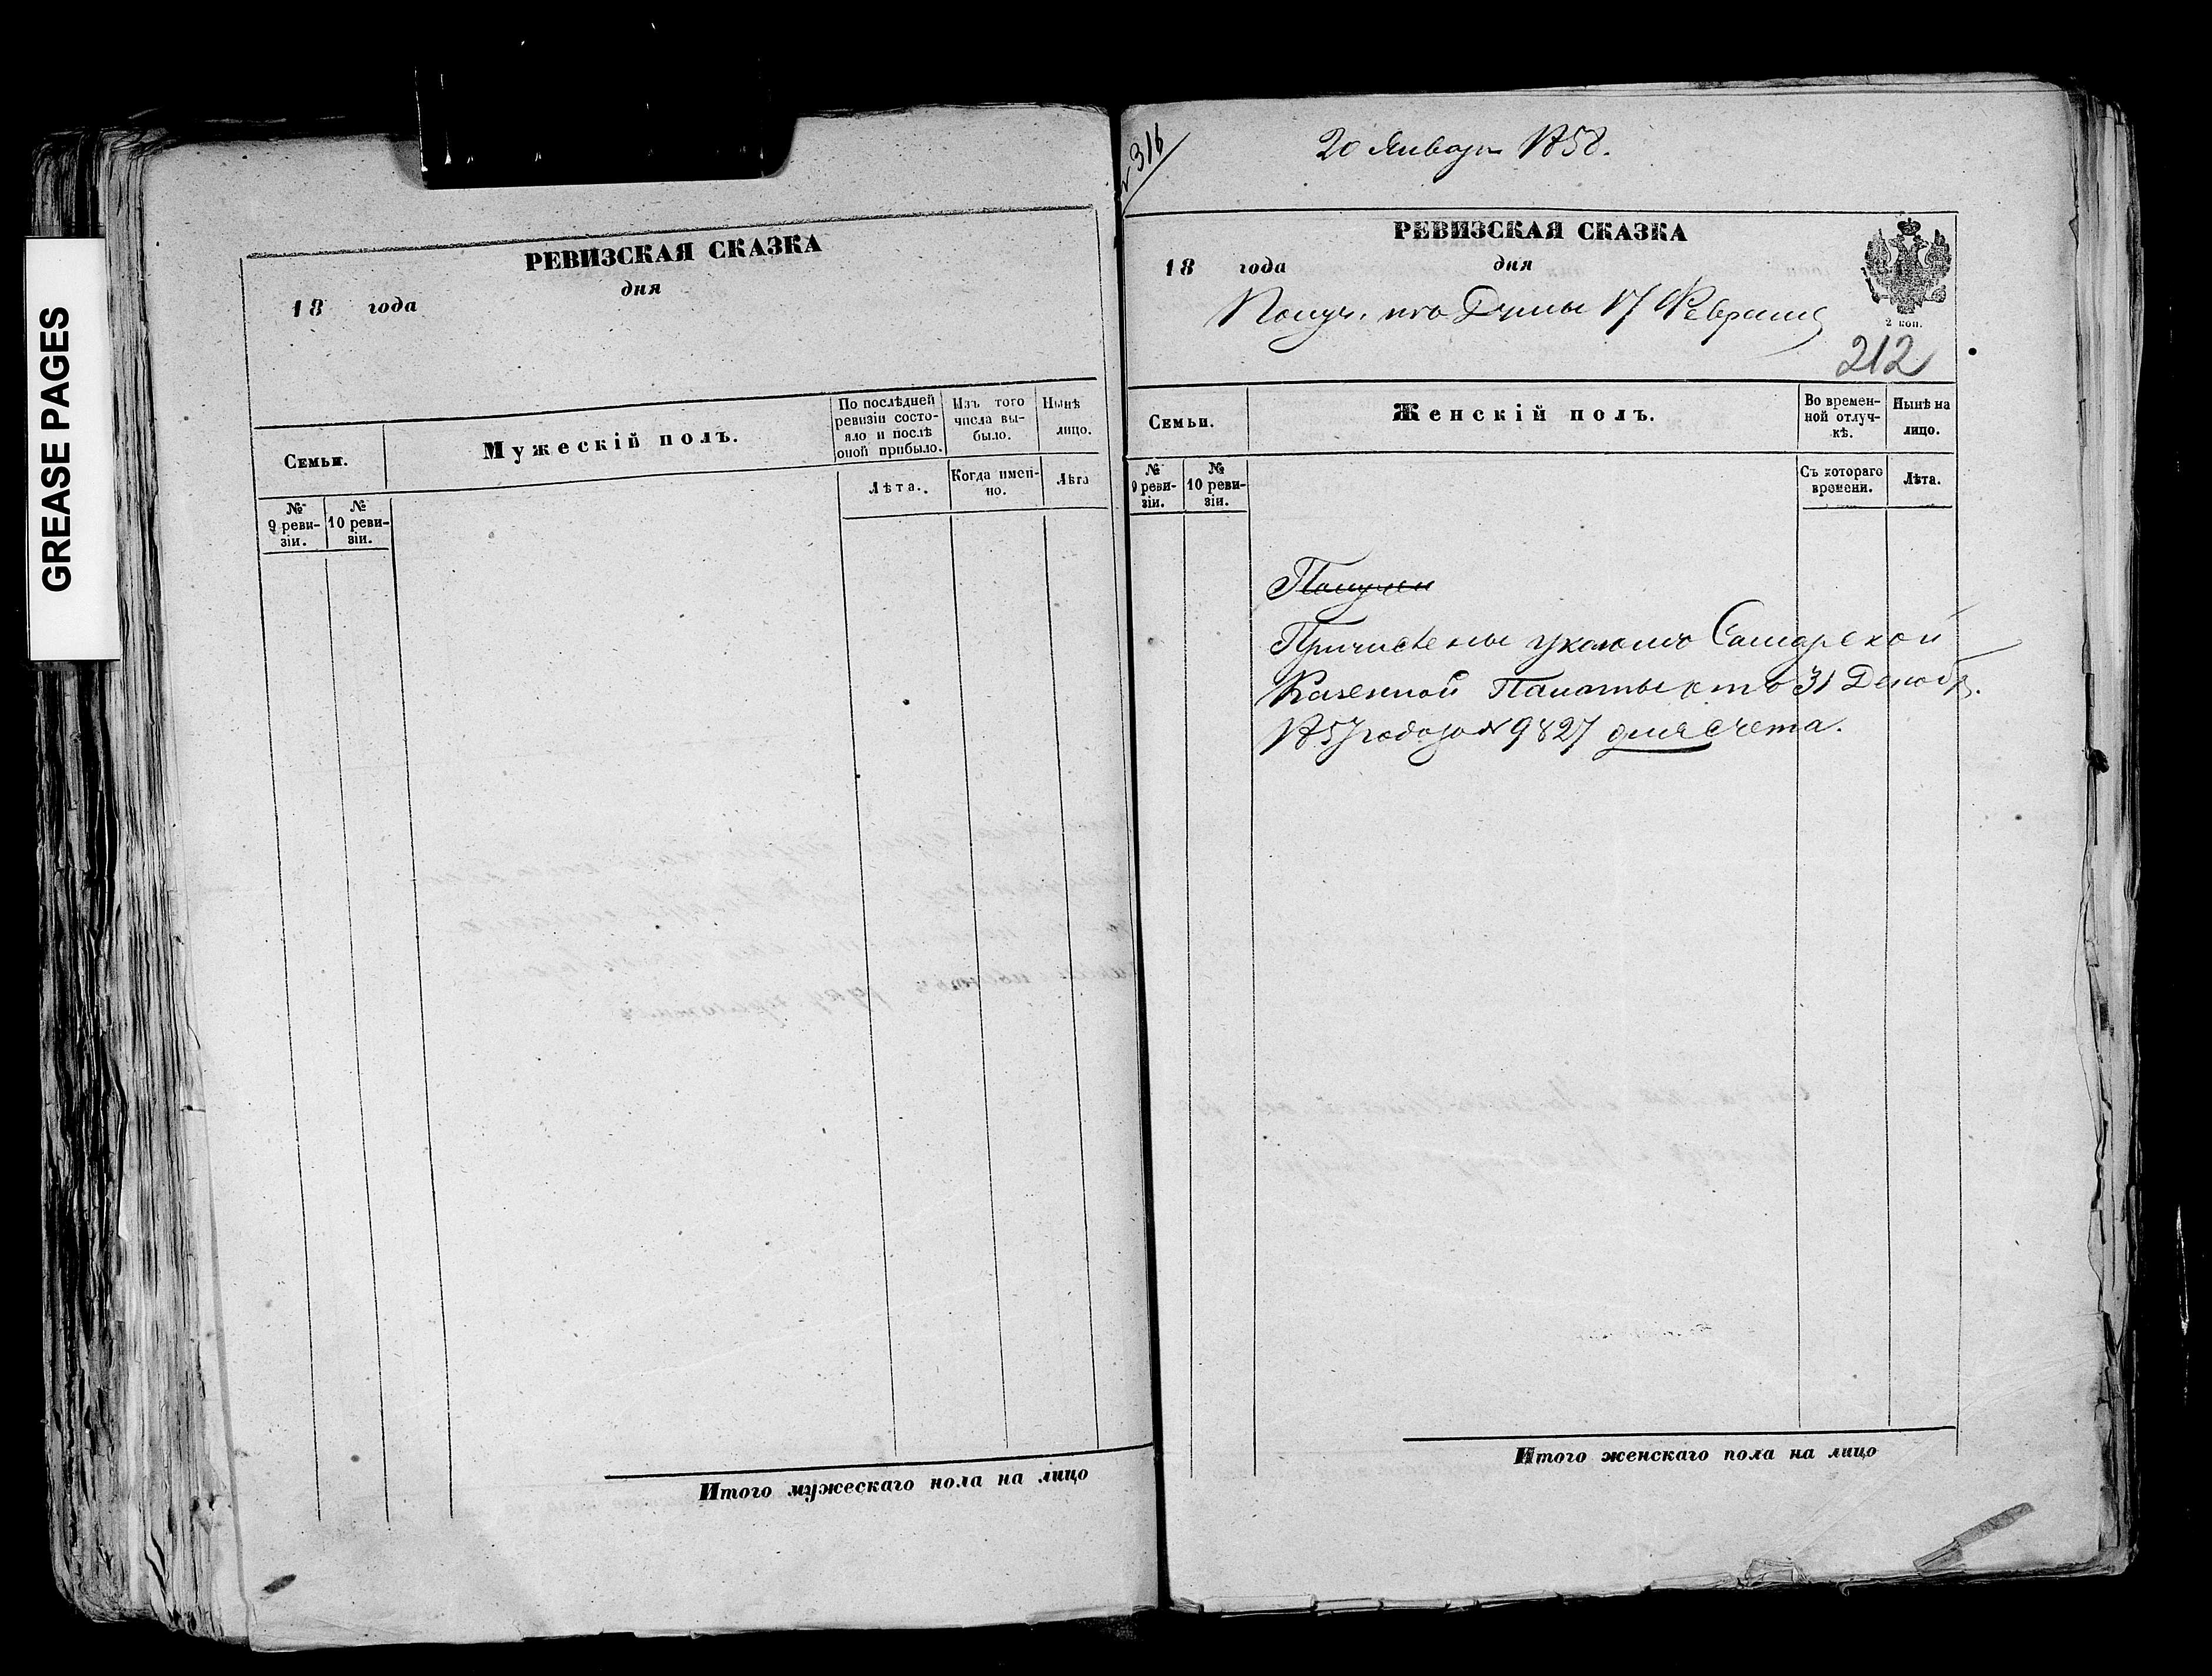 GREASE PAGES
РЕВИЗСКАЯ СКАЗКА
18 года дня
Семьи.
Мужескій полъ.
По послѣдней
ревизіи состо-
яло и послѣ
оной прибыло.
Изъ того
числа вы-
было.
Нынѣ
лицо.
№
9 реви-
зіи.
№
10 реви-
зіи.
Лѣта.
Когда имен-
но.
Лѣта
Итого мужескаго пола на лицо
№ 316
20 Января 1858.
РЕВИЗСКАЯ СКАЗКА
18 года дня
Получ. изъ Думы 17 Февраля
2 коп.
212
Семьи.
Женскій полъ.
Во времен-
ной отлуч-
кѣ.
Нынѣ на
лицо.
№
9 реви-
зіи.
№
10 реви-
зіи.
Съ котораго
времени.
Лѣта.
Получен
Причислены указомъ Самарской
Казенной Палаты отъ 31 Декабр.
1857 года за № 9827 для счета.
Итого женскаго пола на лицо